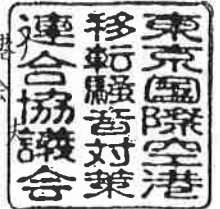 東京國際空港
移転騒音対策
連合協議会